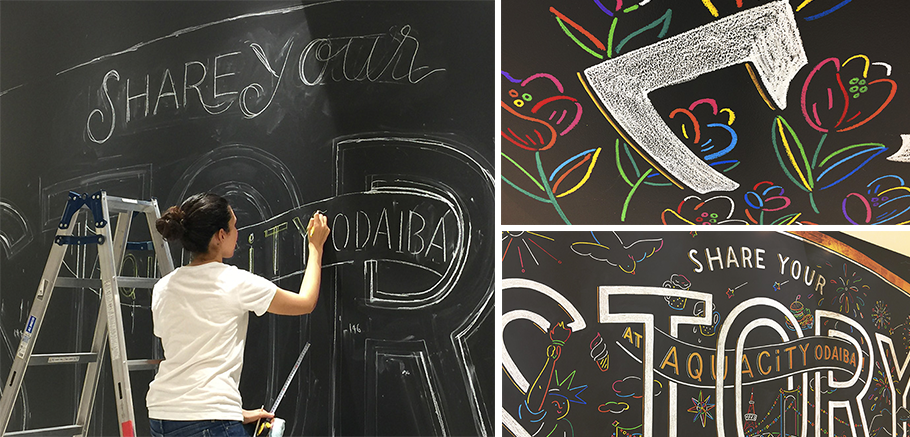 SHARE Your
iTY ODAIBA
146
SHARE YOUR
STORY
AT AQUACiTY ODAIBA